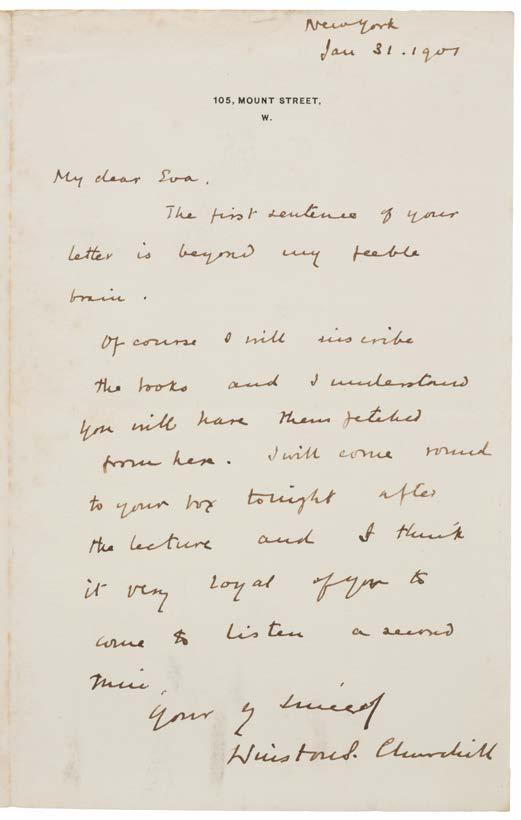 New York
Jan 31. 1901
105, MOUNT STREET,
W.
My dear Eva.
The first sentence of your
letter is beyond my feeble
brain.
Of course I will inscribe
the books and I understand
you will have them fetched
from here. I will come round
to your box tonight after
the lecture and I think
it very loyal of you to
come to listen a second
time.
Yours sincerely
Winston S. Churchill